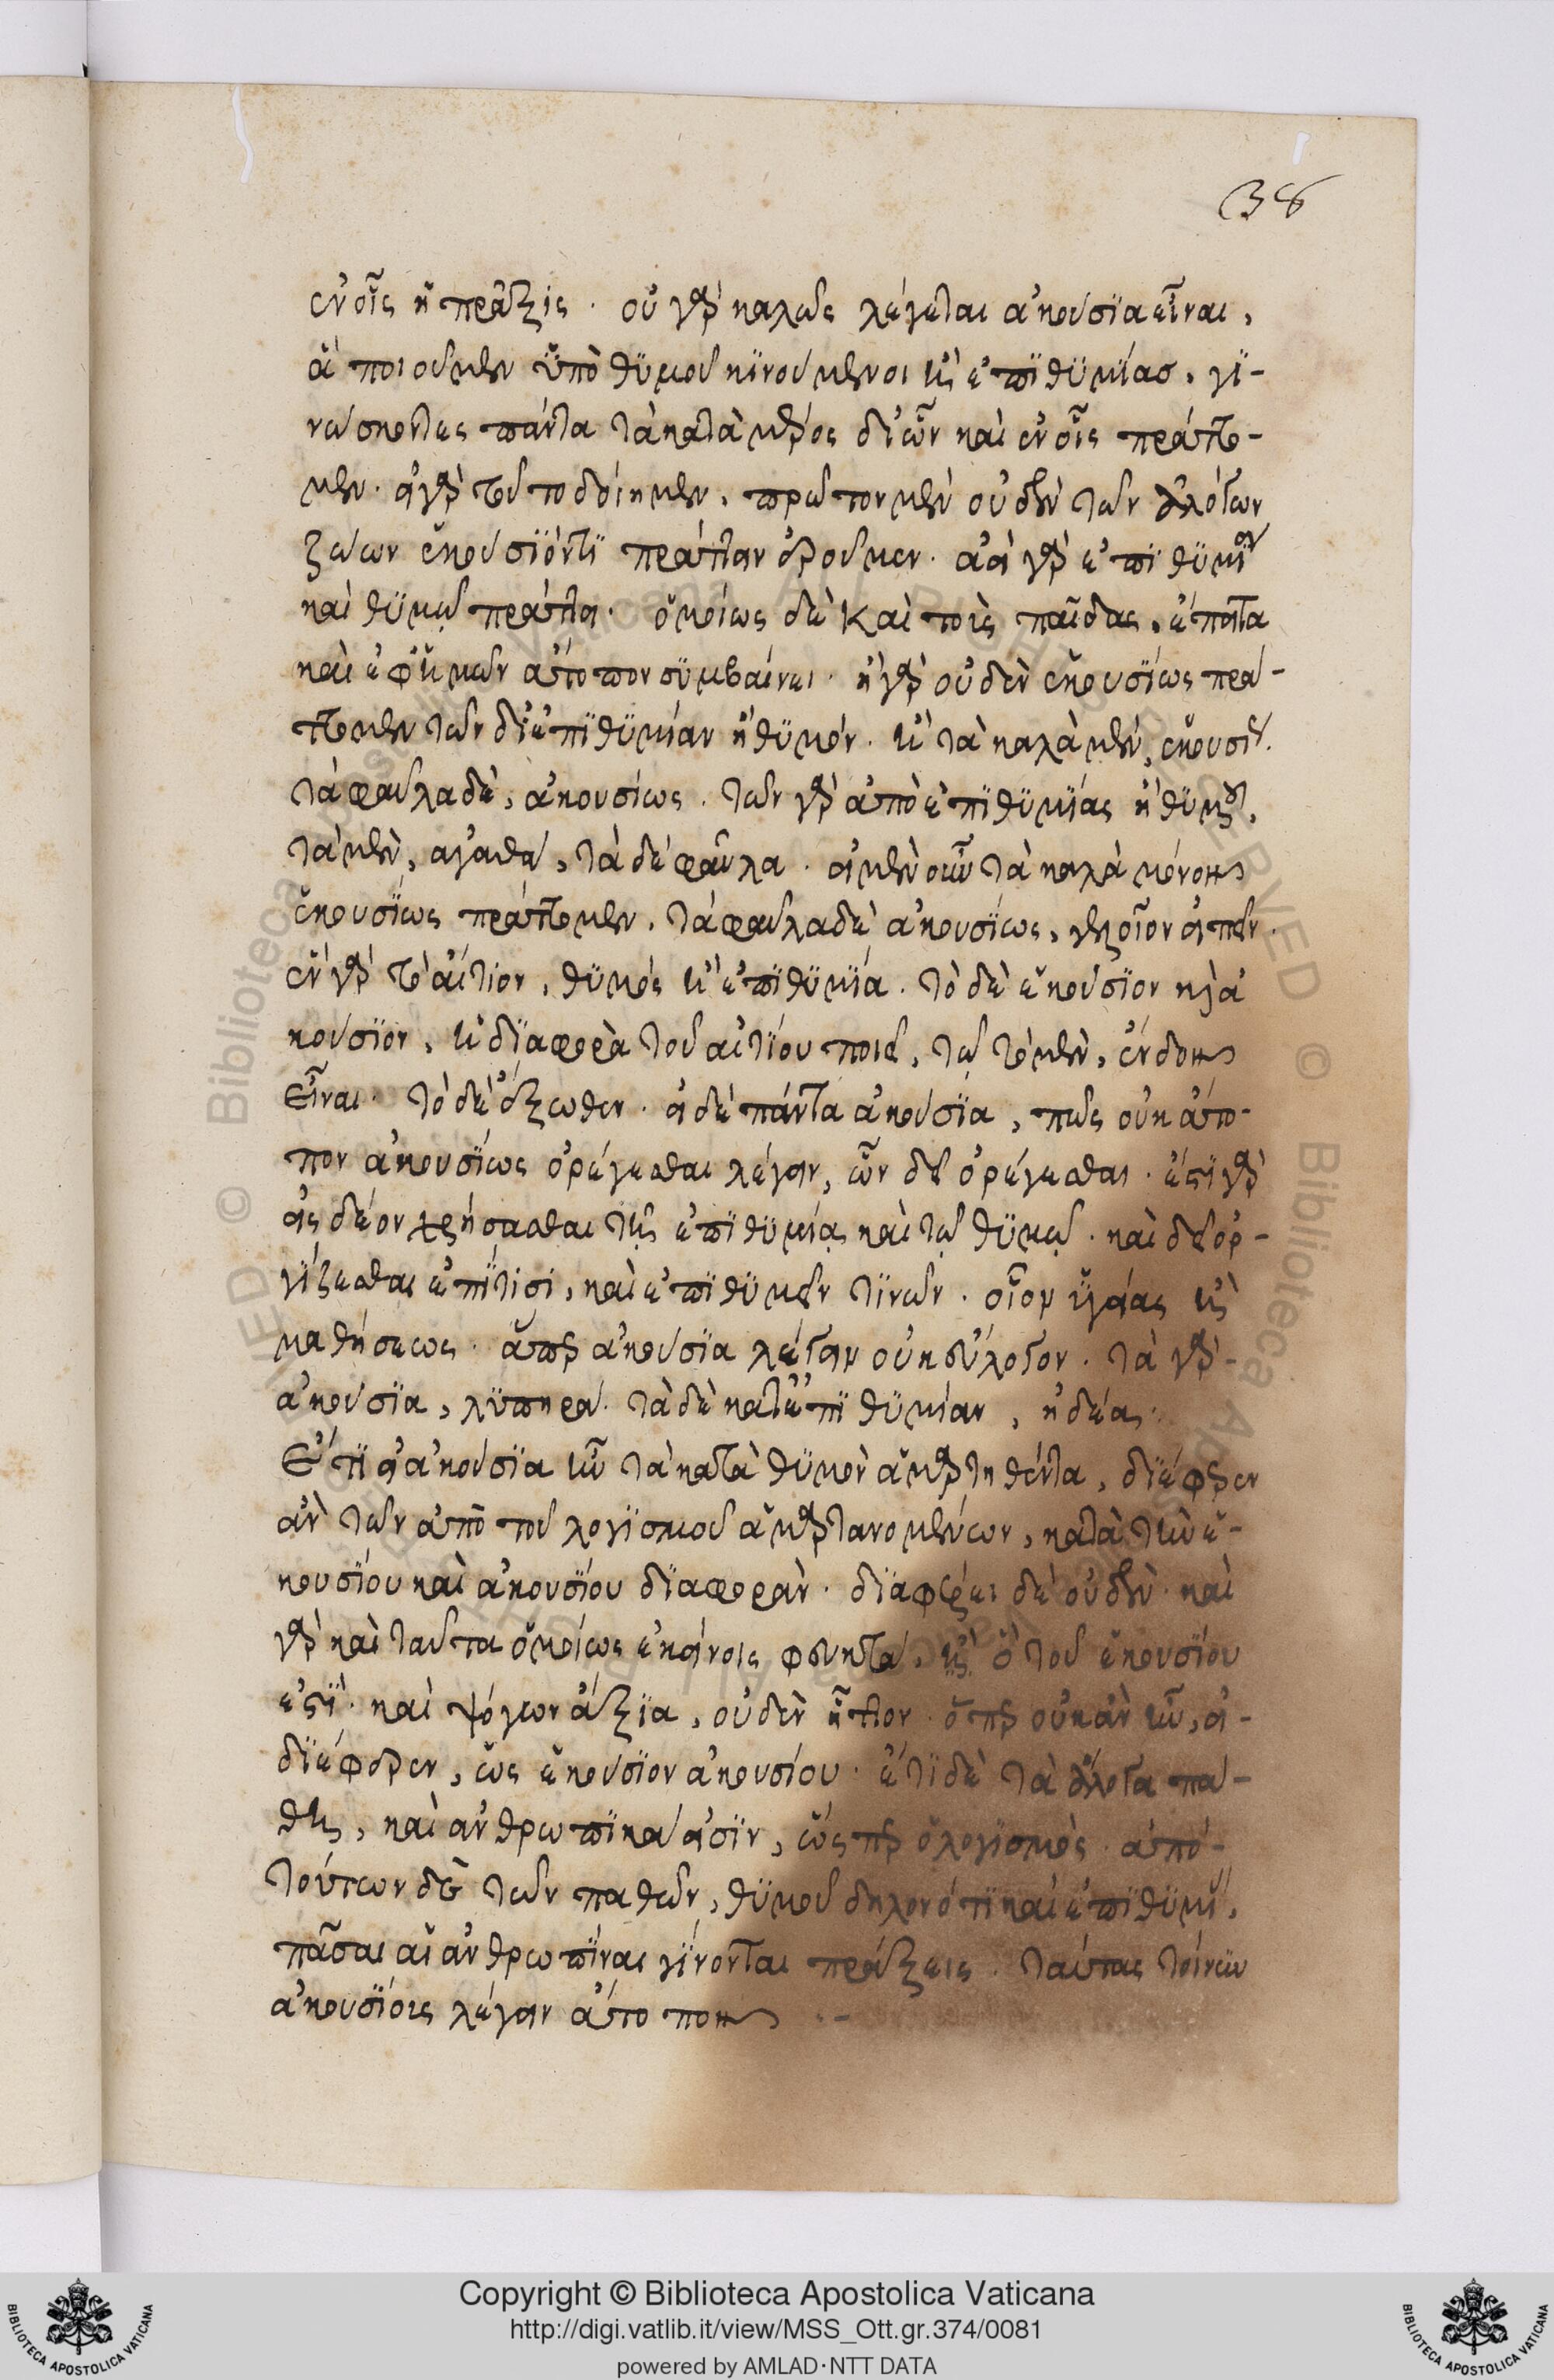 38
ἐν οἷς ἡ πρᾶξις · οὐ γὰρ καλῶς λέγεται ἀκούσια εἶναι,
ἃ ποιοῦμεν ὑπὸ θυμοῦ κινούμενοι καὶ ἐπιθυμίας, γι-
νώσκοντες πάντα τὰ κατὰ μέρος δι' ὧν καὶ ἐν οἷς πράττο-
μεν· εἰ γὰρ τοῦτο δοίημεν, πρῶτον μὲν οὐδὲν τῶν ἀλόγων
ζώων ἑκουσιόν τι πράττειν ἐροῦμεν· ἀεὶ γὰρ ἐπιθυμία
καὶ θυμῷ πράττει· ὁμοίως δὲ καὶ τοὺς παῖδας, ἔπειτα
καὶ ἐφ' ἡμῶν ἄτοπον συμβαίνει· ἢ γὰρ οὐδὲν ἑκουσίως πρά-
ττομεν τῶν δι' ἐπιθυμίαν ἢ θυμόν· ἢ τὰ καλὰ μὲν, ἑκουσίως.
τὰ φαῦλα δὲ, ἀκουσίως· τῶν γὰρ ἀπὸ ἐπιθυμίας ἢ θυμοῦ,
τὰ μὲν, ἀγαθὰ, τὰ δὲ φαῦλα· εἰ μὲν οὖν τὰ καλὰ μόνον
ἑκουσίως πράττομεν, τὰ φαῦλα δὲ ἀκουσίως, γελοῖον εἰπεῖν·
ἓν γὰρ τὸ αἴτιον, θυμός ἢ ἐπιθυμία· τὸ δὲ ἑκούσιον καὶ ἀ
κούσιον, ἡ διαφορὰ τοῦ αἰτίου ποιεῖ, τῷ τὸ μὲν, ἔνδον
εἶναι· τὸ δὲ ἔξωθεν· εἰ δὲ πάντα ἀκούσια, πῶς οὐκ ἄτο-
πον ἀκουσίως ὀρέγεσθαι λέγειν, ὧν δεῖ ὀρέγεσθαι· ἔστι γὰρ
εἰς δέον χρήσασθαι τῆς ἐπιθυμίας καὶ τῷ θυμῷ· καὶ δεῖ ὀρ-
γίζεσθαι ἐπί τισι, καὶ ἐπιθυμεῖν τινῶν· οἷον ὑγείας καὶ
μαθήσεως· ἅπερ ἀκούσια λέγειν οὐκ εὔλογον· τὰ γὰρ-
ἀκούσια, λυπηρά· τὰ δὲ κατ' ἐπιθυμίαν, ἡδέα·
Ἔτι εἰ ἀκούσια ἦν τὰ κατὰ θυμὸν ἁμαρτηθέντα, διέφερεν
ἂν τῶν ἀπὸ τοῦ λογισμοῦ ἁμαρτανομένων, κατὰ τὴν ἑ-
κουσίου καὶ ἀκουσίου διαφοράν· διαφέρει δὲ οὐδὲν· καὶ
γὰρ καὶ ταῦτα ὁμοίως ἐκείνοις φευκτά, καὶ τοῦ ἑκουσίου
ἐστὶ· καὶ ψόγων ἄξια, οὐδὲν ἧττον· ὅπερ οὐκ ἂν ἦν, εἰ-
διέφερεν, ὡς ἑκούσιον ἀκουσίου· ἔτι δὲ τὰ ἄλογα πά-
θη, καὶ ἀνθρωπικά εἰσιν, ὥσπερ ὁ λογισμός· ἀπὸ-
τούτων δὲ τῶν παθῶν, θυμοῦ δηλονότι καὶ ἐπιθυμίας,
πᾶσαι αἱ ἀνθρώπιναι γίνονται πράξεις· ταύτας τοίνυν
ἀκουσίοις λέγειν ἄτοπον · -
Copyright © Biblioteca Apostolica Vaticana
http://digi.vatlib.it/view/MSS_Ott.gr.374/0081
powered by AMLAD·NTT DATA